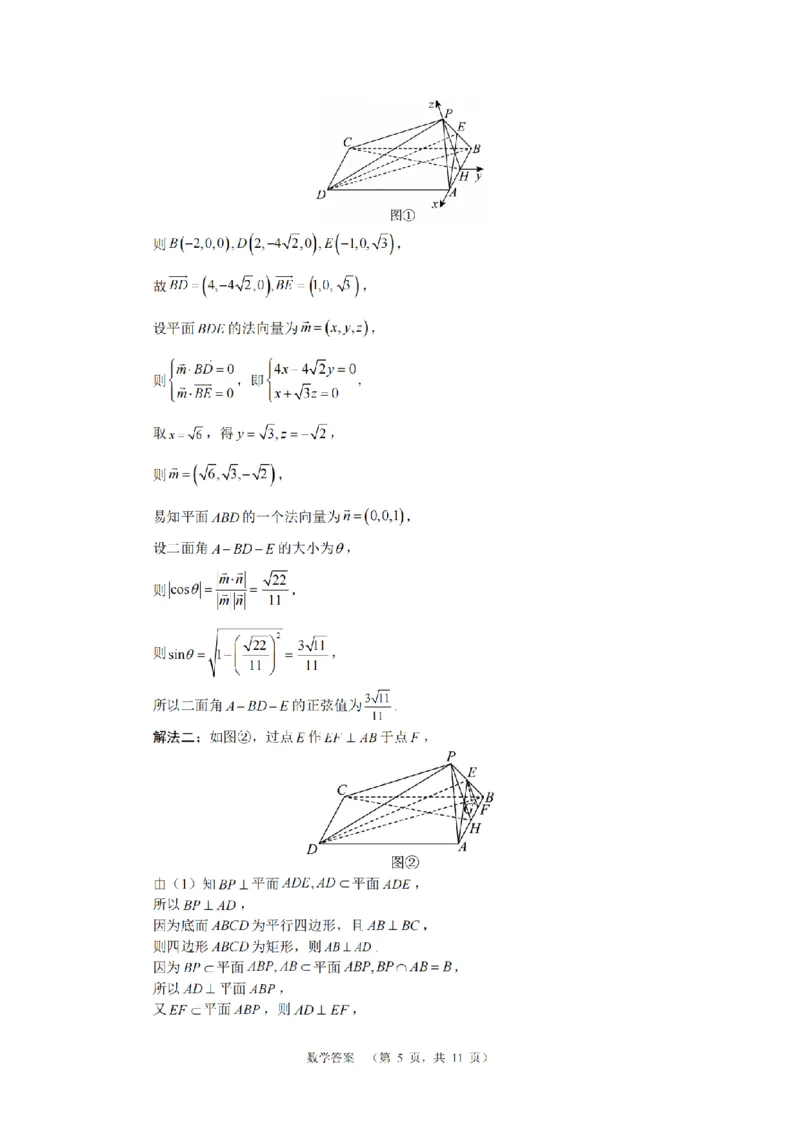 z
P
E
C
B
H y
D
A
x
图①
则B(-2,0,0),D(2,-4√2,0),E(-1,0,√3),
故BD=(4,-4√2,0),BE=(1,0,√3),
设平面BDE的法向量为m=(x,y,z),
则{m·BD=0 m·BE=0,即{4x-4√2y=0 x+√3z=0,
取x=√6,得y=√3,z=-√2,
则m=(√6,√3,-√2),
易知平面ABD的一个法向量为n=(0,0,1),
设二面角A-BD-E的大小为θ,
则|cosθ|=|m·n|/|m||n|=√22/11,
则sinθ=√(1-(√22/11)²)=3√11/11,
所以二面角A-BD-E的正弦值为3√11/11.
解法二:如图②,过点E作EF⊥AB于点F,
P
E
C
B
G F
H
D
A
图②
由(1)知BP⊥平面ADE,AD⊂平面ADE,
所以BP⊥AD,
因为底面ABCD为平行四边形,且AB⊥BC,
则四边形ABCD为矩形,则AB⊥AD.
因为BP⊂平面ABP,AB⊂平面ABP,BP∩AB=B,
所以AD⊥平面ABP,
又EF⊂平面ABP,则AD⊥EF,
数学答案 (第 5 页,共 11 页)